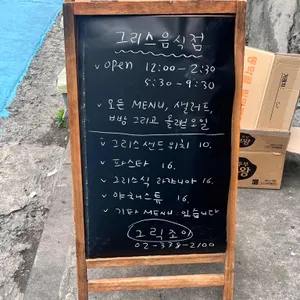 그리스음식점
✓ open 12:00-2:30
5:30-9:30
✓ 모든 MENU, 샐러드,
빵 그리고 올리브오일
✓ 그리스샌드위치 10.
✓ 파스타 16.
✓ 그리스식 라자니아 16.
✓ 야채스튜 16.
✓ 기타 MENU 있습니다
그릭조이
02-338-2100